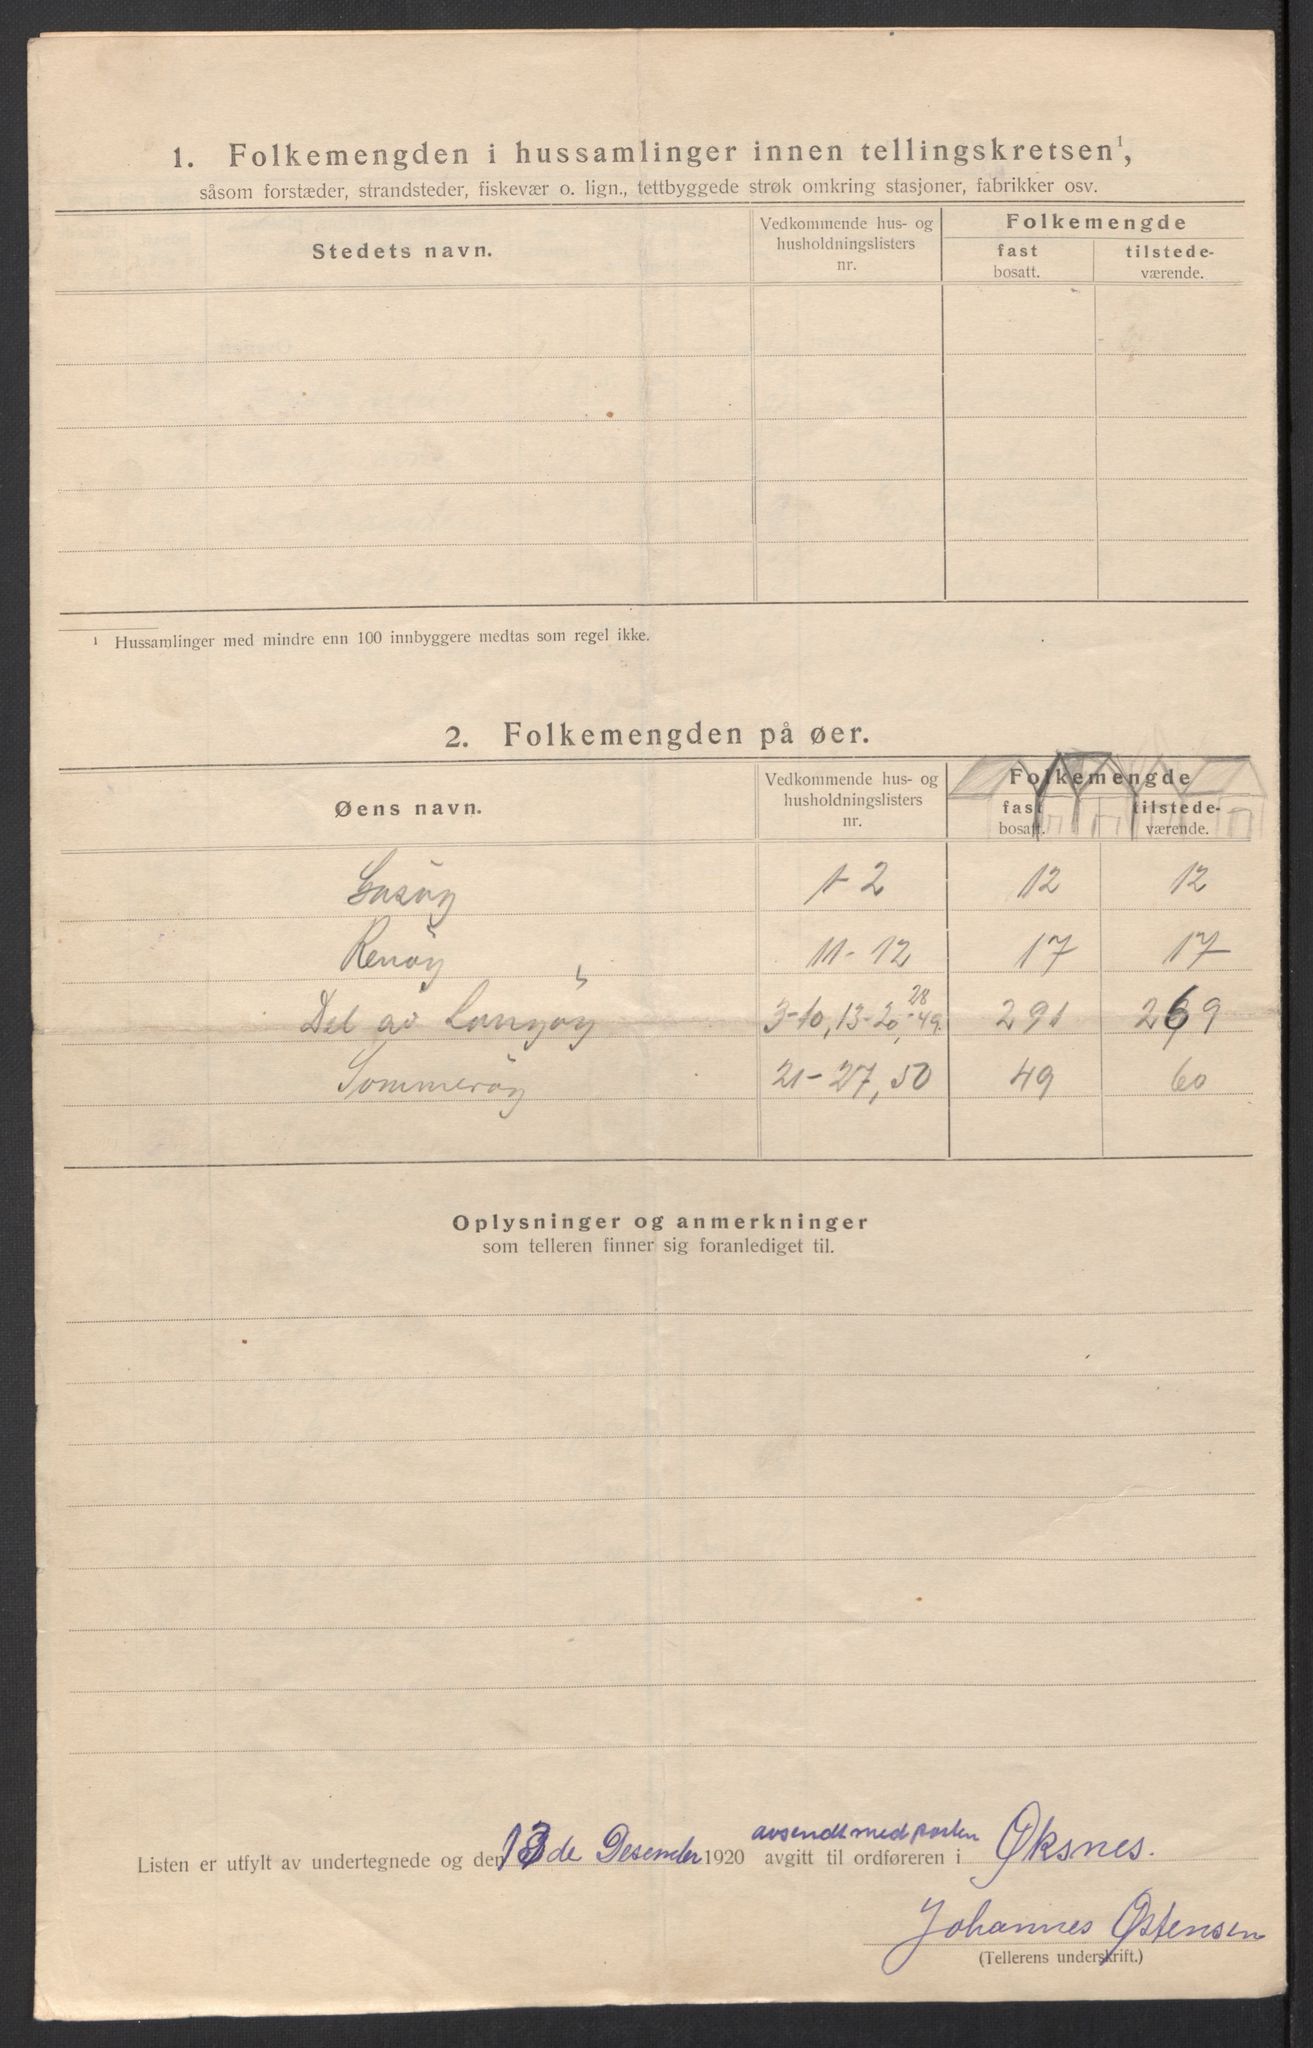 1. Folkemengden i hussamlinger innen tellingskretsen¹,
såsom forstæder, strandsteder, fiskevær o. lign., tettbyggede strøk omkring stasjoner, fabrikker osv.
Stedets navn.
Vedkommende hus- og
husholdningslisters
nr.
Folkemengde
fast
bosatt.
tilstede-
værende.
¹ Hussamlinger med mindre enn 100 innbyggere medtas som regel ikke.
2. Folkemengden på øer.
Øens navn.
Vedkommende hus- og
husholdningslisters
nr.
Folkemengde
fast
bosatt.
tilstede-
værende.
Gasöy 1-2 12 12
Renöy 11-12 17 17
Del av Langöy 3-10, 13-20, 28-49. 291 269
Sommeröy 21-27, 50 49 60
Oplysninger og anmerkninger
som telleren finner sig foranlediget til.
avsendt med posten
Listen er utfylt av undertegnede og den 13de Desember 1920 avgitt til ordføreren i Øksnes.
Johannes Østensen
(Tellerens underskrift.)